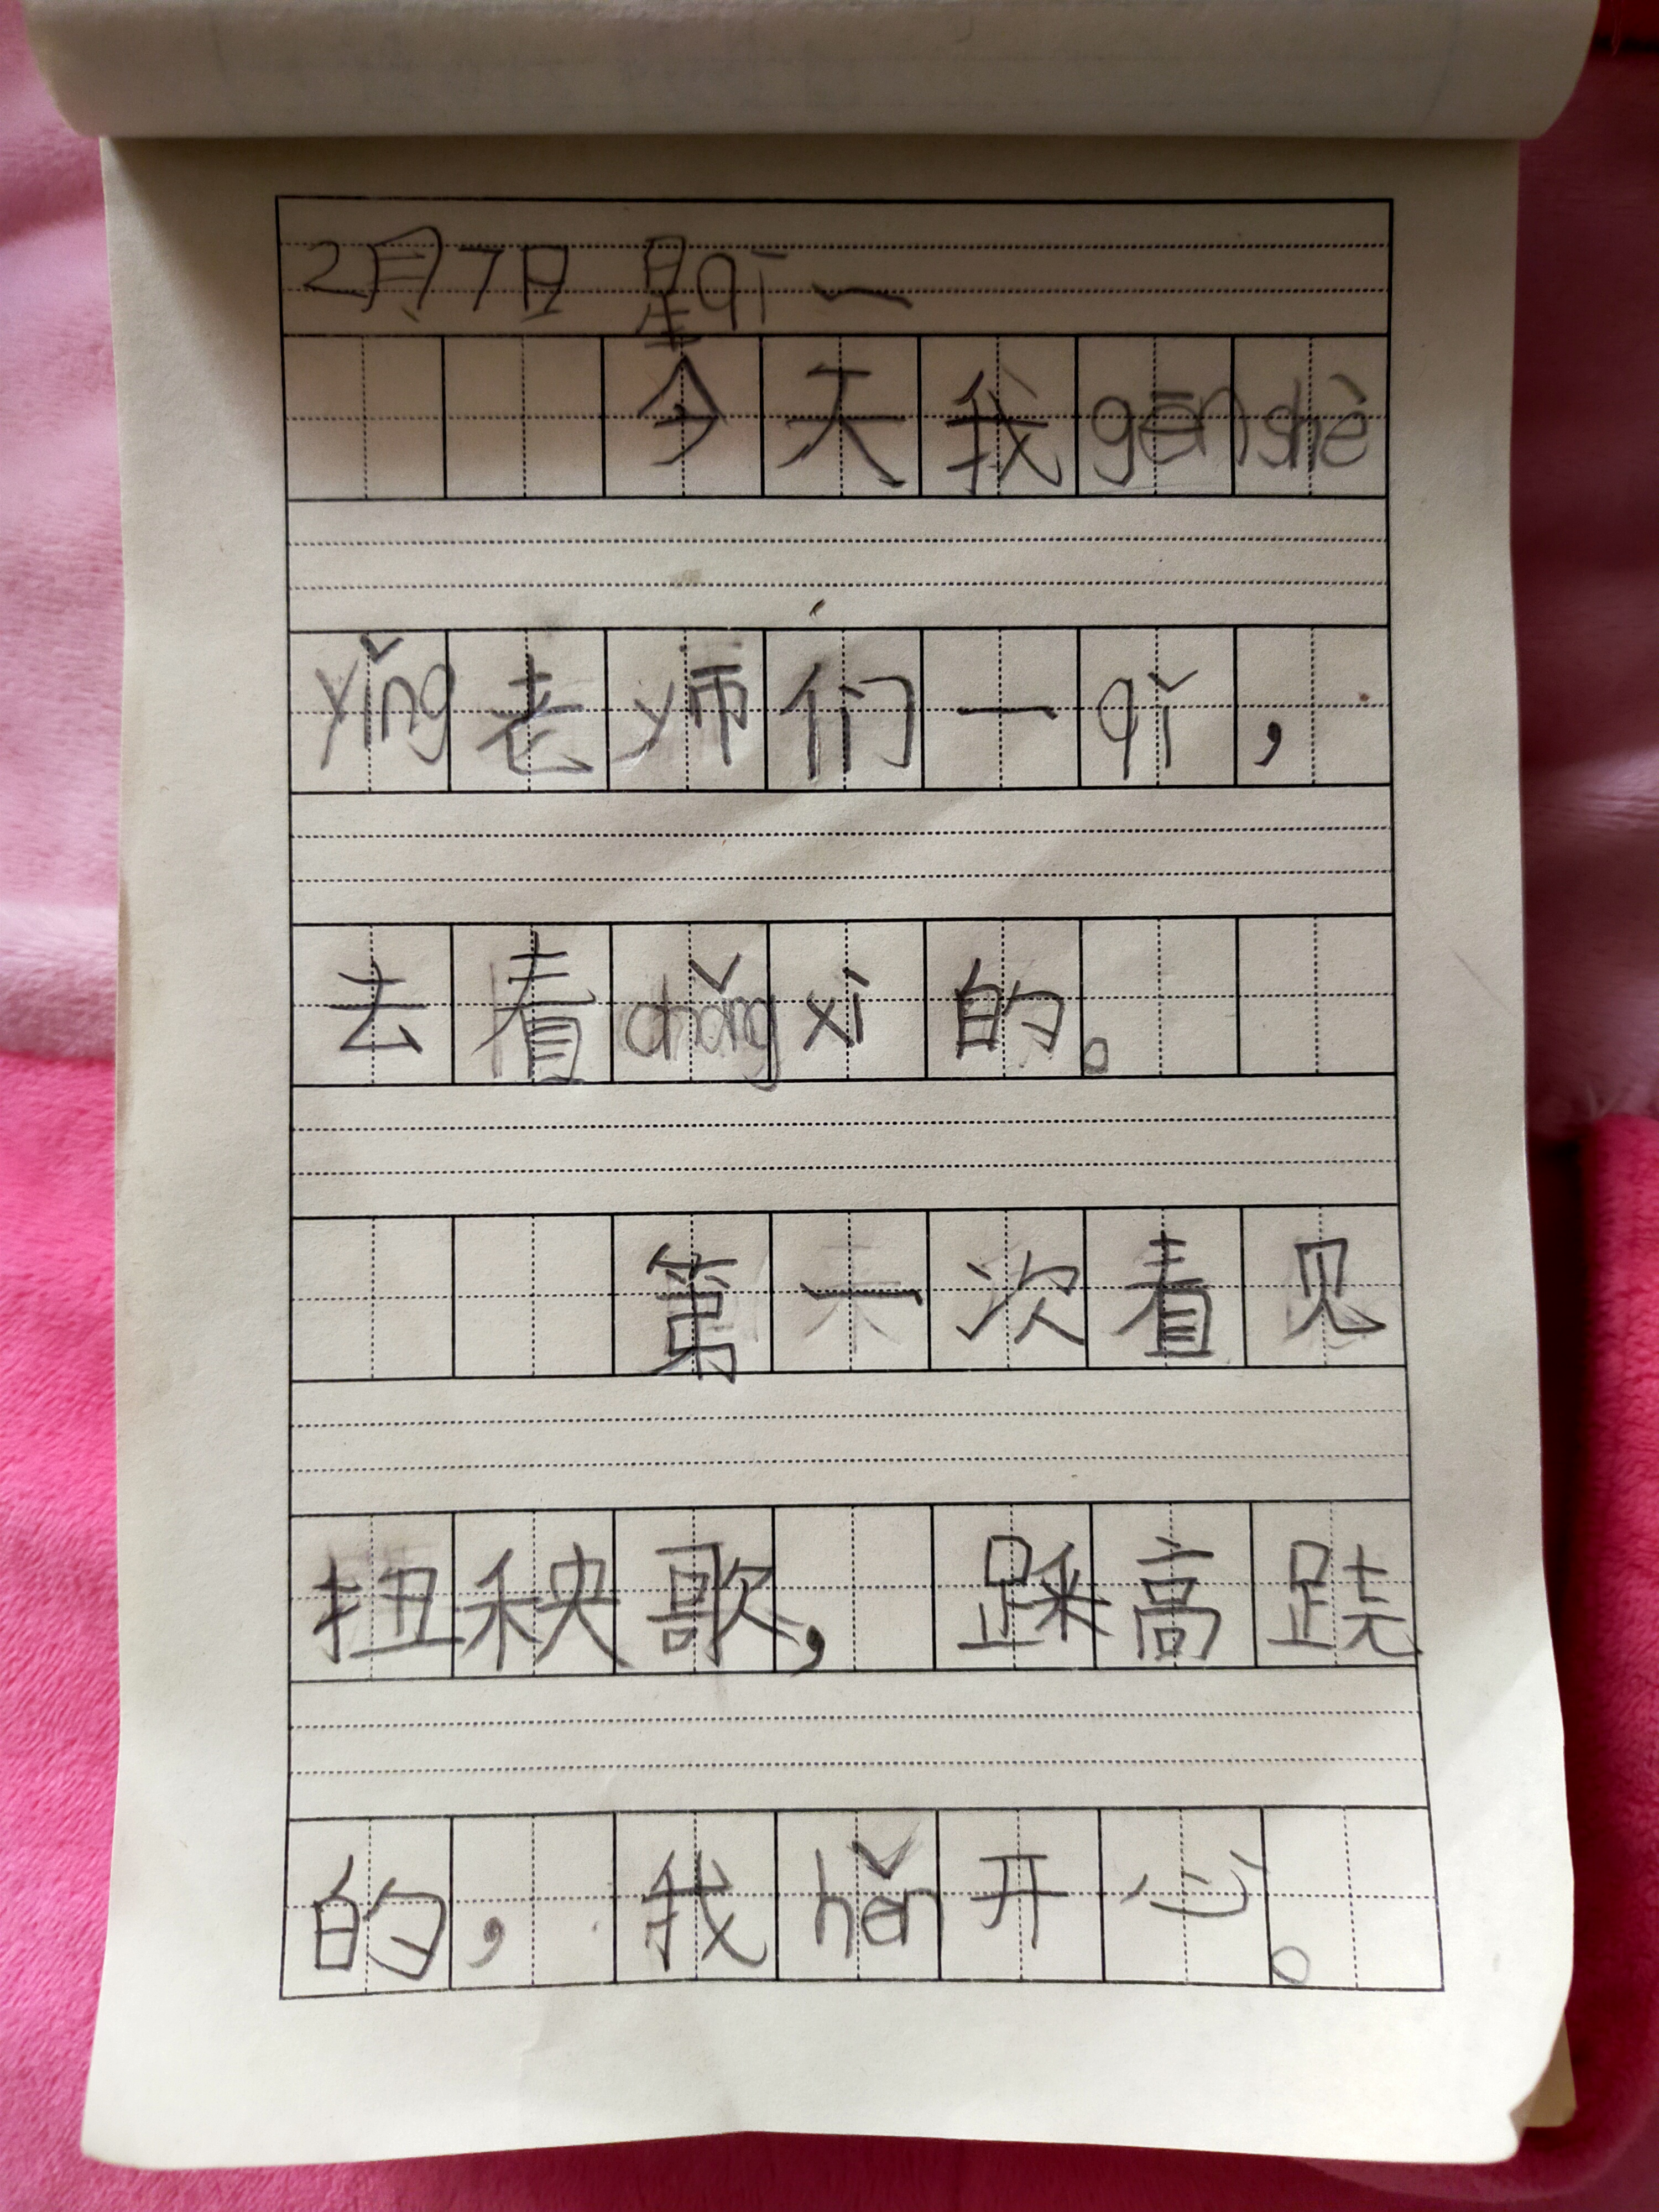 2月7日 星qī一
今天我gēnshè
yǐng老师们一qǐ，
去看chǎngxì的。
第一次看见
扭秧歌，踩高跷
的，我hěn开心。